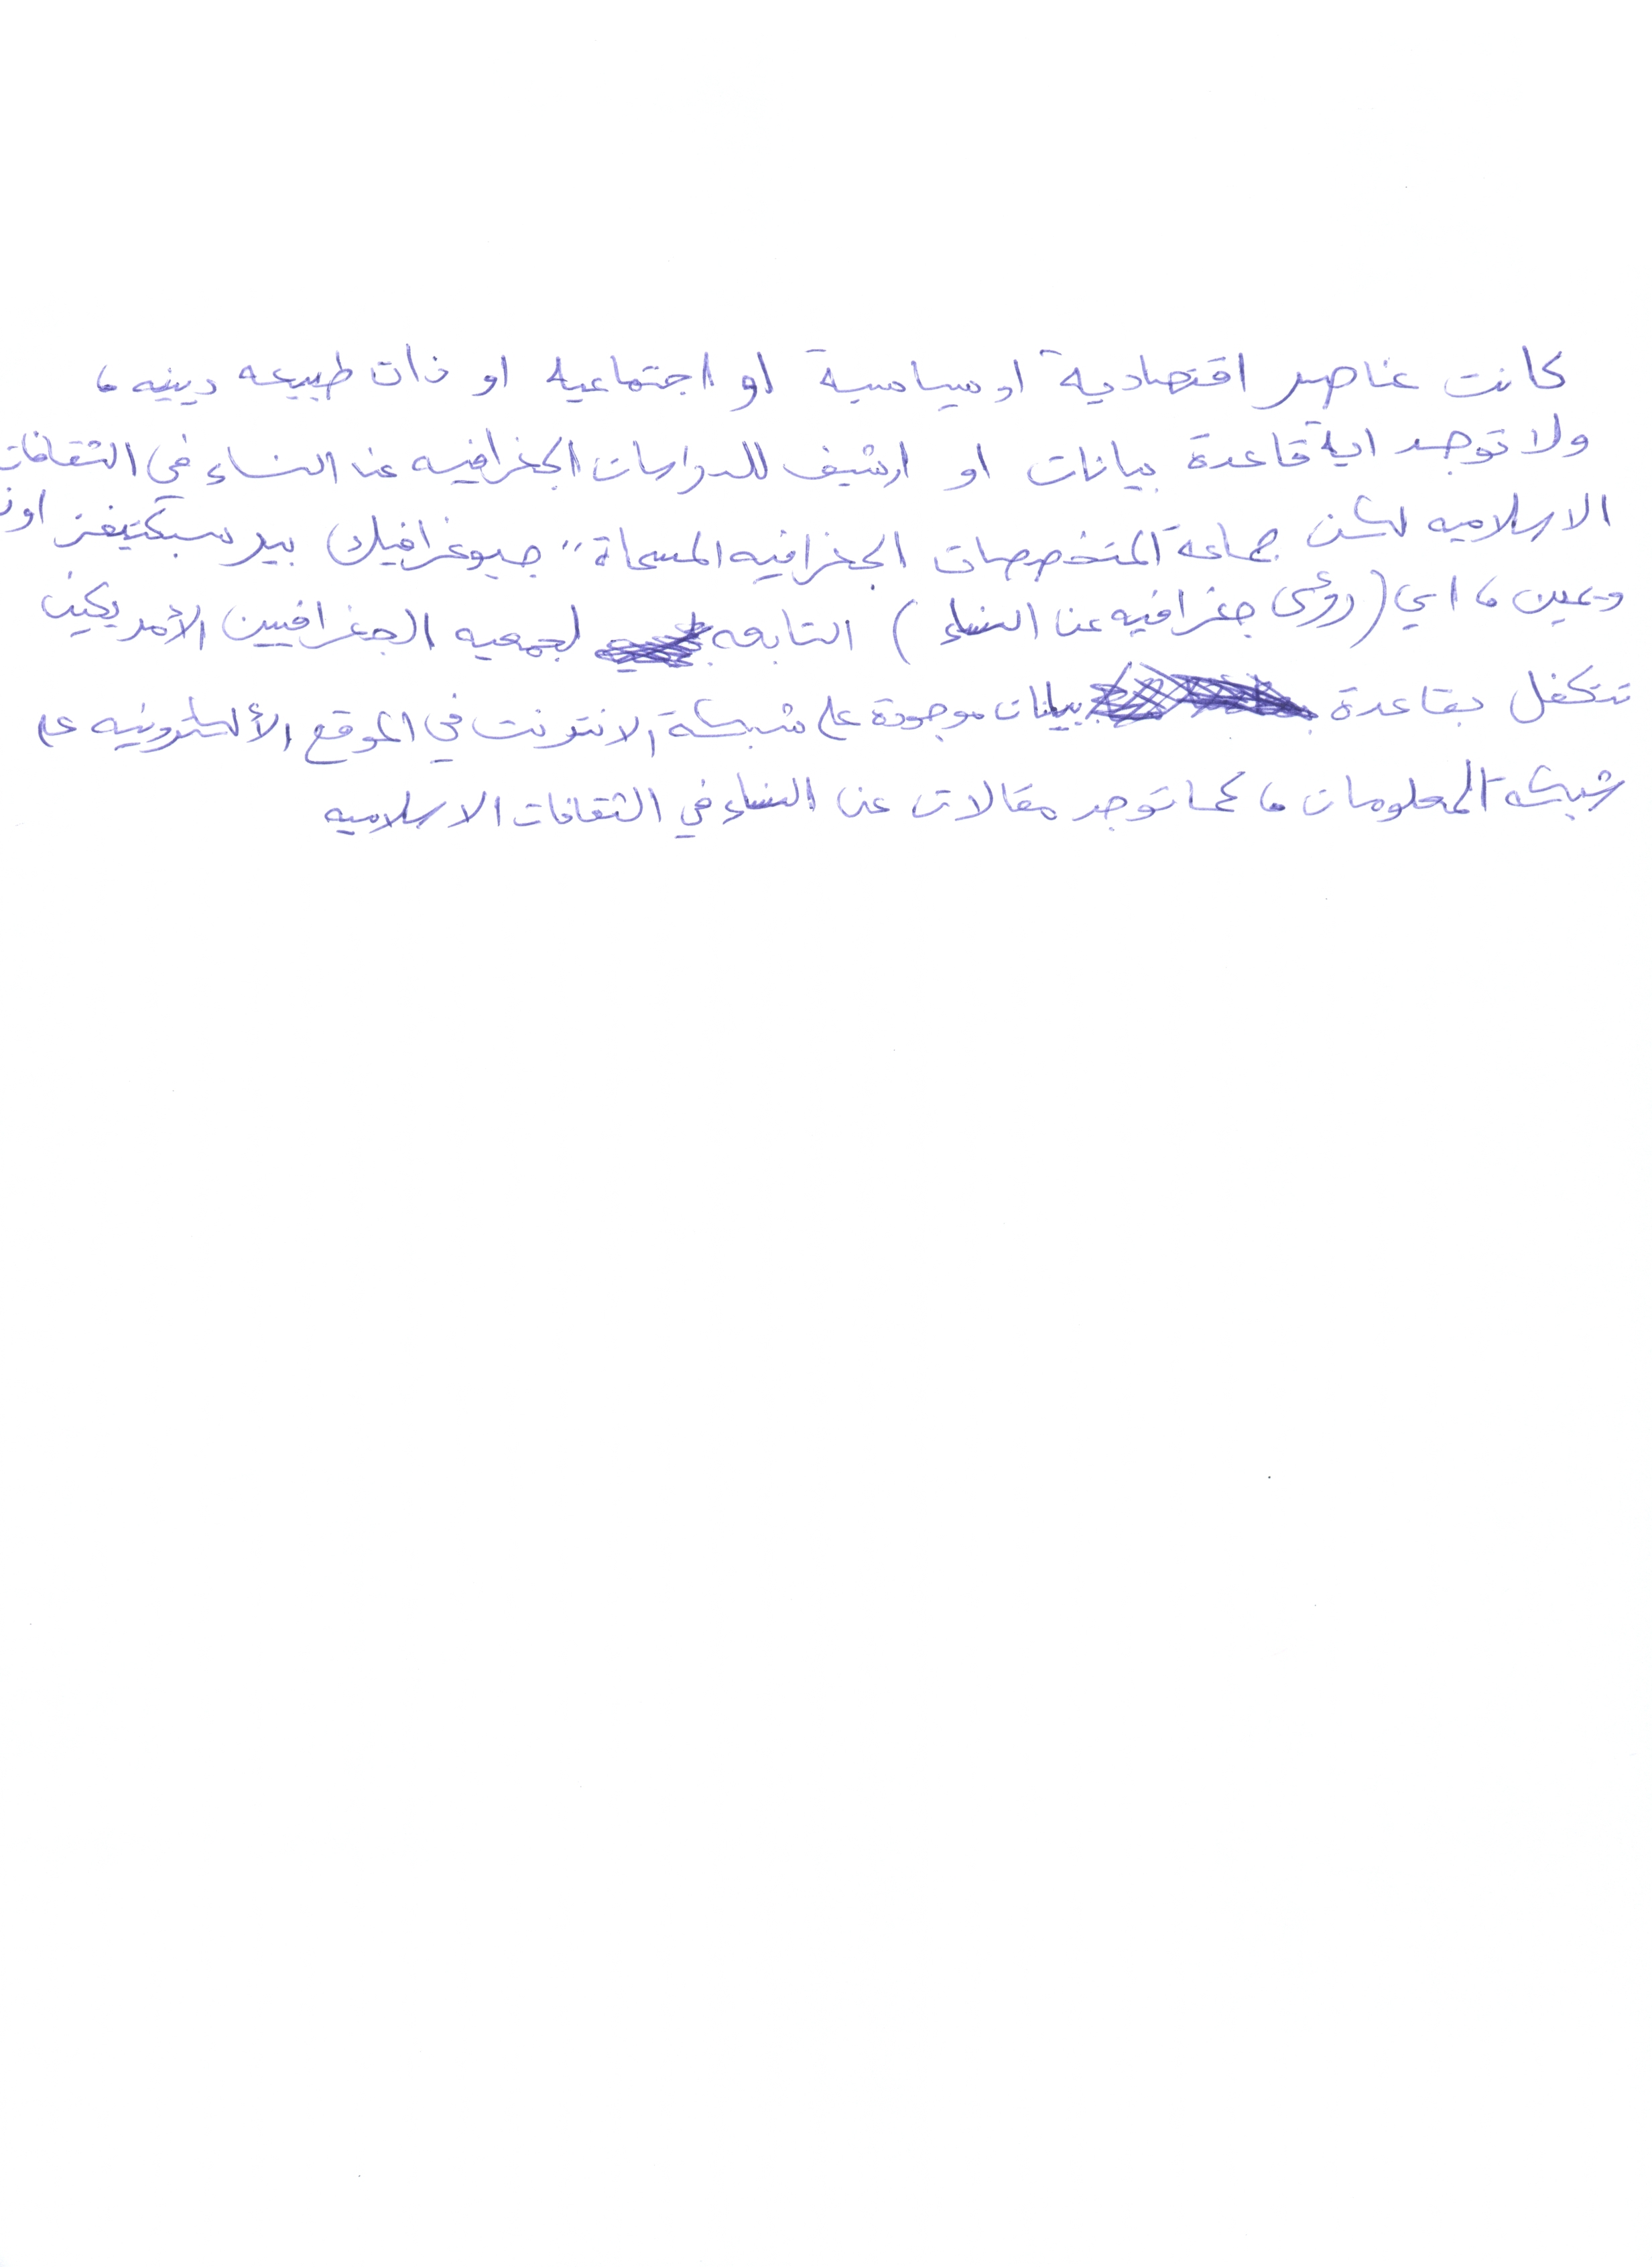 كانت عناصر اقتصادية او سياسية او اجتماعية او ذات طبيعه دينيه ،
ولا توجد اية قاعدة بيانات او ارشيف للدراسات الجغرافيه عن النساء في الثقافات
الاسلاميه لكن جماعة المتخصصات الجغرافيه المسماة " جيوغرافيك) بيرسبكتيفز اون
ويمين ، اي (رؤى جغرافيه عن النساء) التابعه لجمعيه الجغرافيين الأمريكين
تتكفل بقاعدة بيانات موجودة على شبكة الانترنت في الموقع الألكترونيه على
شبكة المعلومات ، كما توجد مقالات عن النساء في الثقافات الاسلاميه